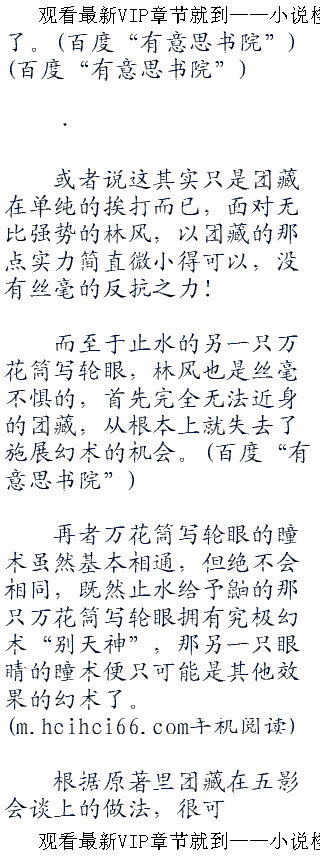 观看最新VIP章节就到——小说
了。(百度“有意思书院”)
(百度“有意思书院”)
.
或者说这其实只是团藏
在单纯的挨打而已，面对无
比强势的林风，以团藏的那
点实力简直微小得可以，没
有丝毫的反抗之力！
而至于止水的另一只万
花筒写轮眼，林风也是丝毫
不惧的，首先完全无法近身
的团藏，从根本上就失去了
施展幻术的机会。(百度“有
意思书院”)
再者万花筒写轮眼的瞳
术虽然基本相通，但绝不会
相同，既然止水给予鼬的那
只万花筒写轮眼拥有究极幻
术“别天神”，那另一只眼
睛的瞳术便只可能是其他效
果的幻术了。
(m.hcihci66.com手机阅读)
根据原著里团藏在五影
会谈上的做法，很可
观看最新VIP章节就到——小说